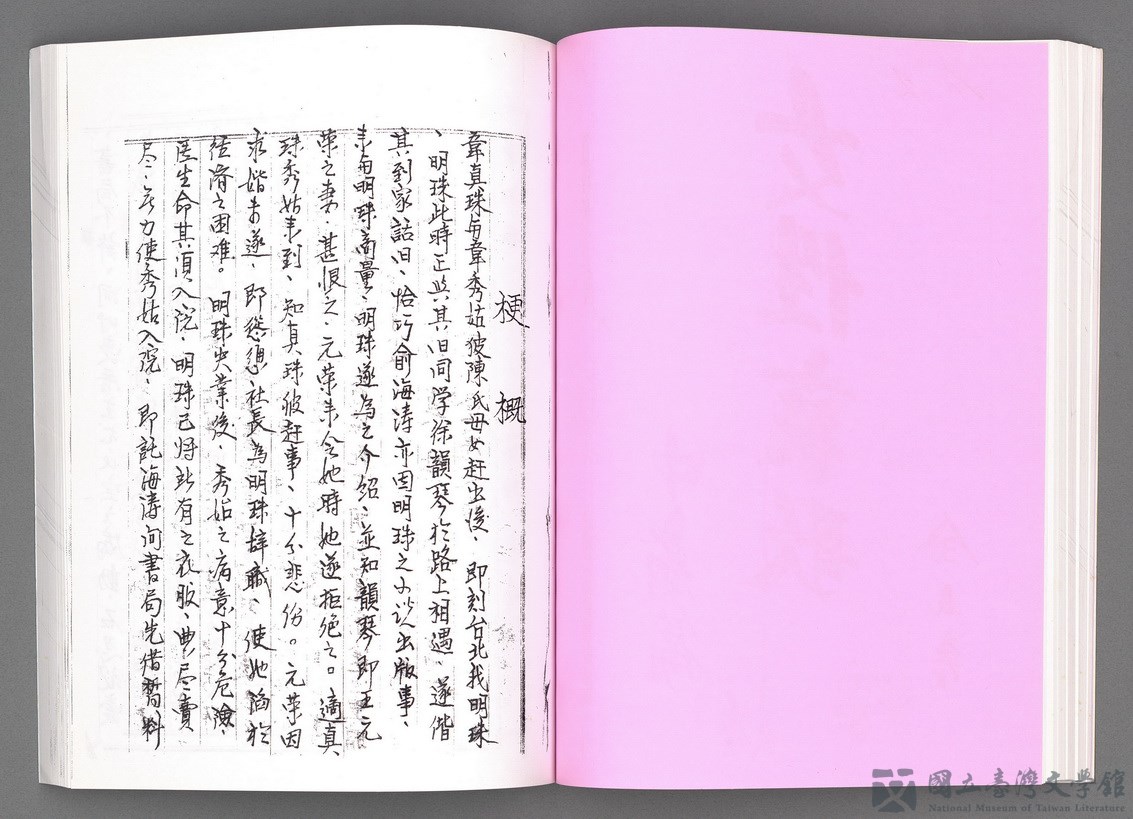 梗概
韋真珠與韋秀姑被陳氏母女赶出後、即刻台北找明珠
、明珠此時正與其旧同学徐韻琴於路上相遇、遂偕
其到家話旧、恰巧俞海涛亦因明珠之小说出版事、
来與明珠商量、明珠遂為之介紹、並知韻琴即王元
荣之妻、甚恨之、元荣来会她時她遂拒绝之。適真
珠秀姑来到、知真珠被赶事、十分悲伤。元荣因
求婚未遂、即慫慂社長為明珠辞職、使她陷於
经濟之困难。明珠失業後、秀姑之病意十分危險、
医生命其須入院、明珠已将所有之衣服、典尽賣
尽、无力使秀姑入院、即託海涛向書局先借暫料
國立臺灣文學館
National Museum of Taiwan Literature